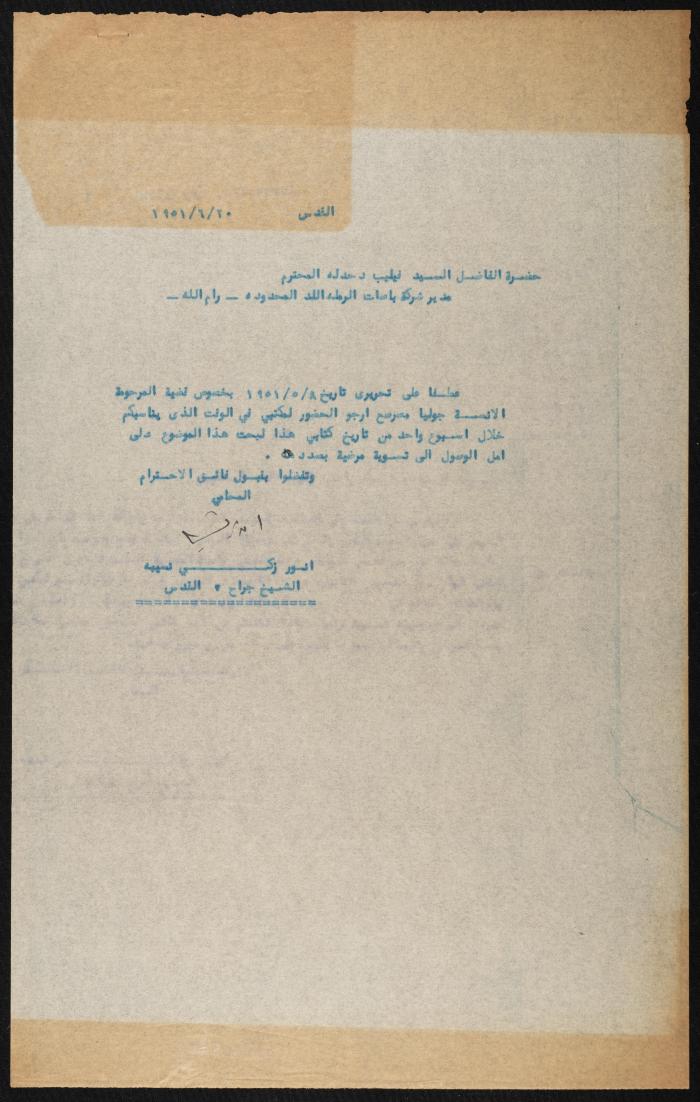 القدس ١٩٥١/٦/٢٠
حضرة الفاضل السيد فيليب دحدله المحترم
مدير شركة باصات الوطنه اللد المحدوده — رام الله —
عطفا على تحريرى تاريخ ١٩٥١/٥/٨ بخصوص قضية المرحومة
الانســة جوليا ارجو الحضور لمكتبي في الوقت الذى يناسبكم
خلال اسبوع واحد من تاريخ كتابي هذا لبحث هذا الموضوع على
امل الوصول الى تسوية مرضية بصدده .
وتفضلوا بقبول فائق الاحترام
المحامي
انور زكــــــي نسيبه
الشيخ جراح ، القدس